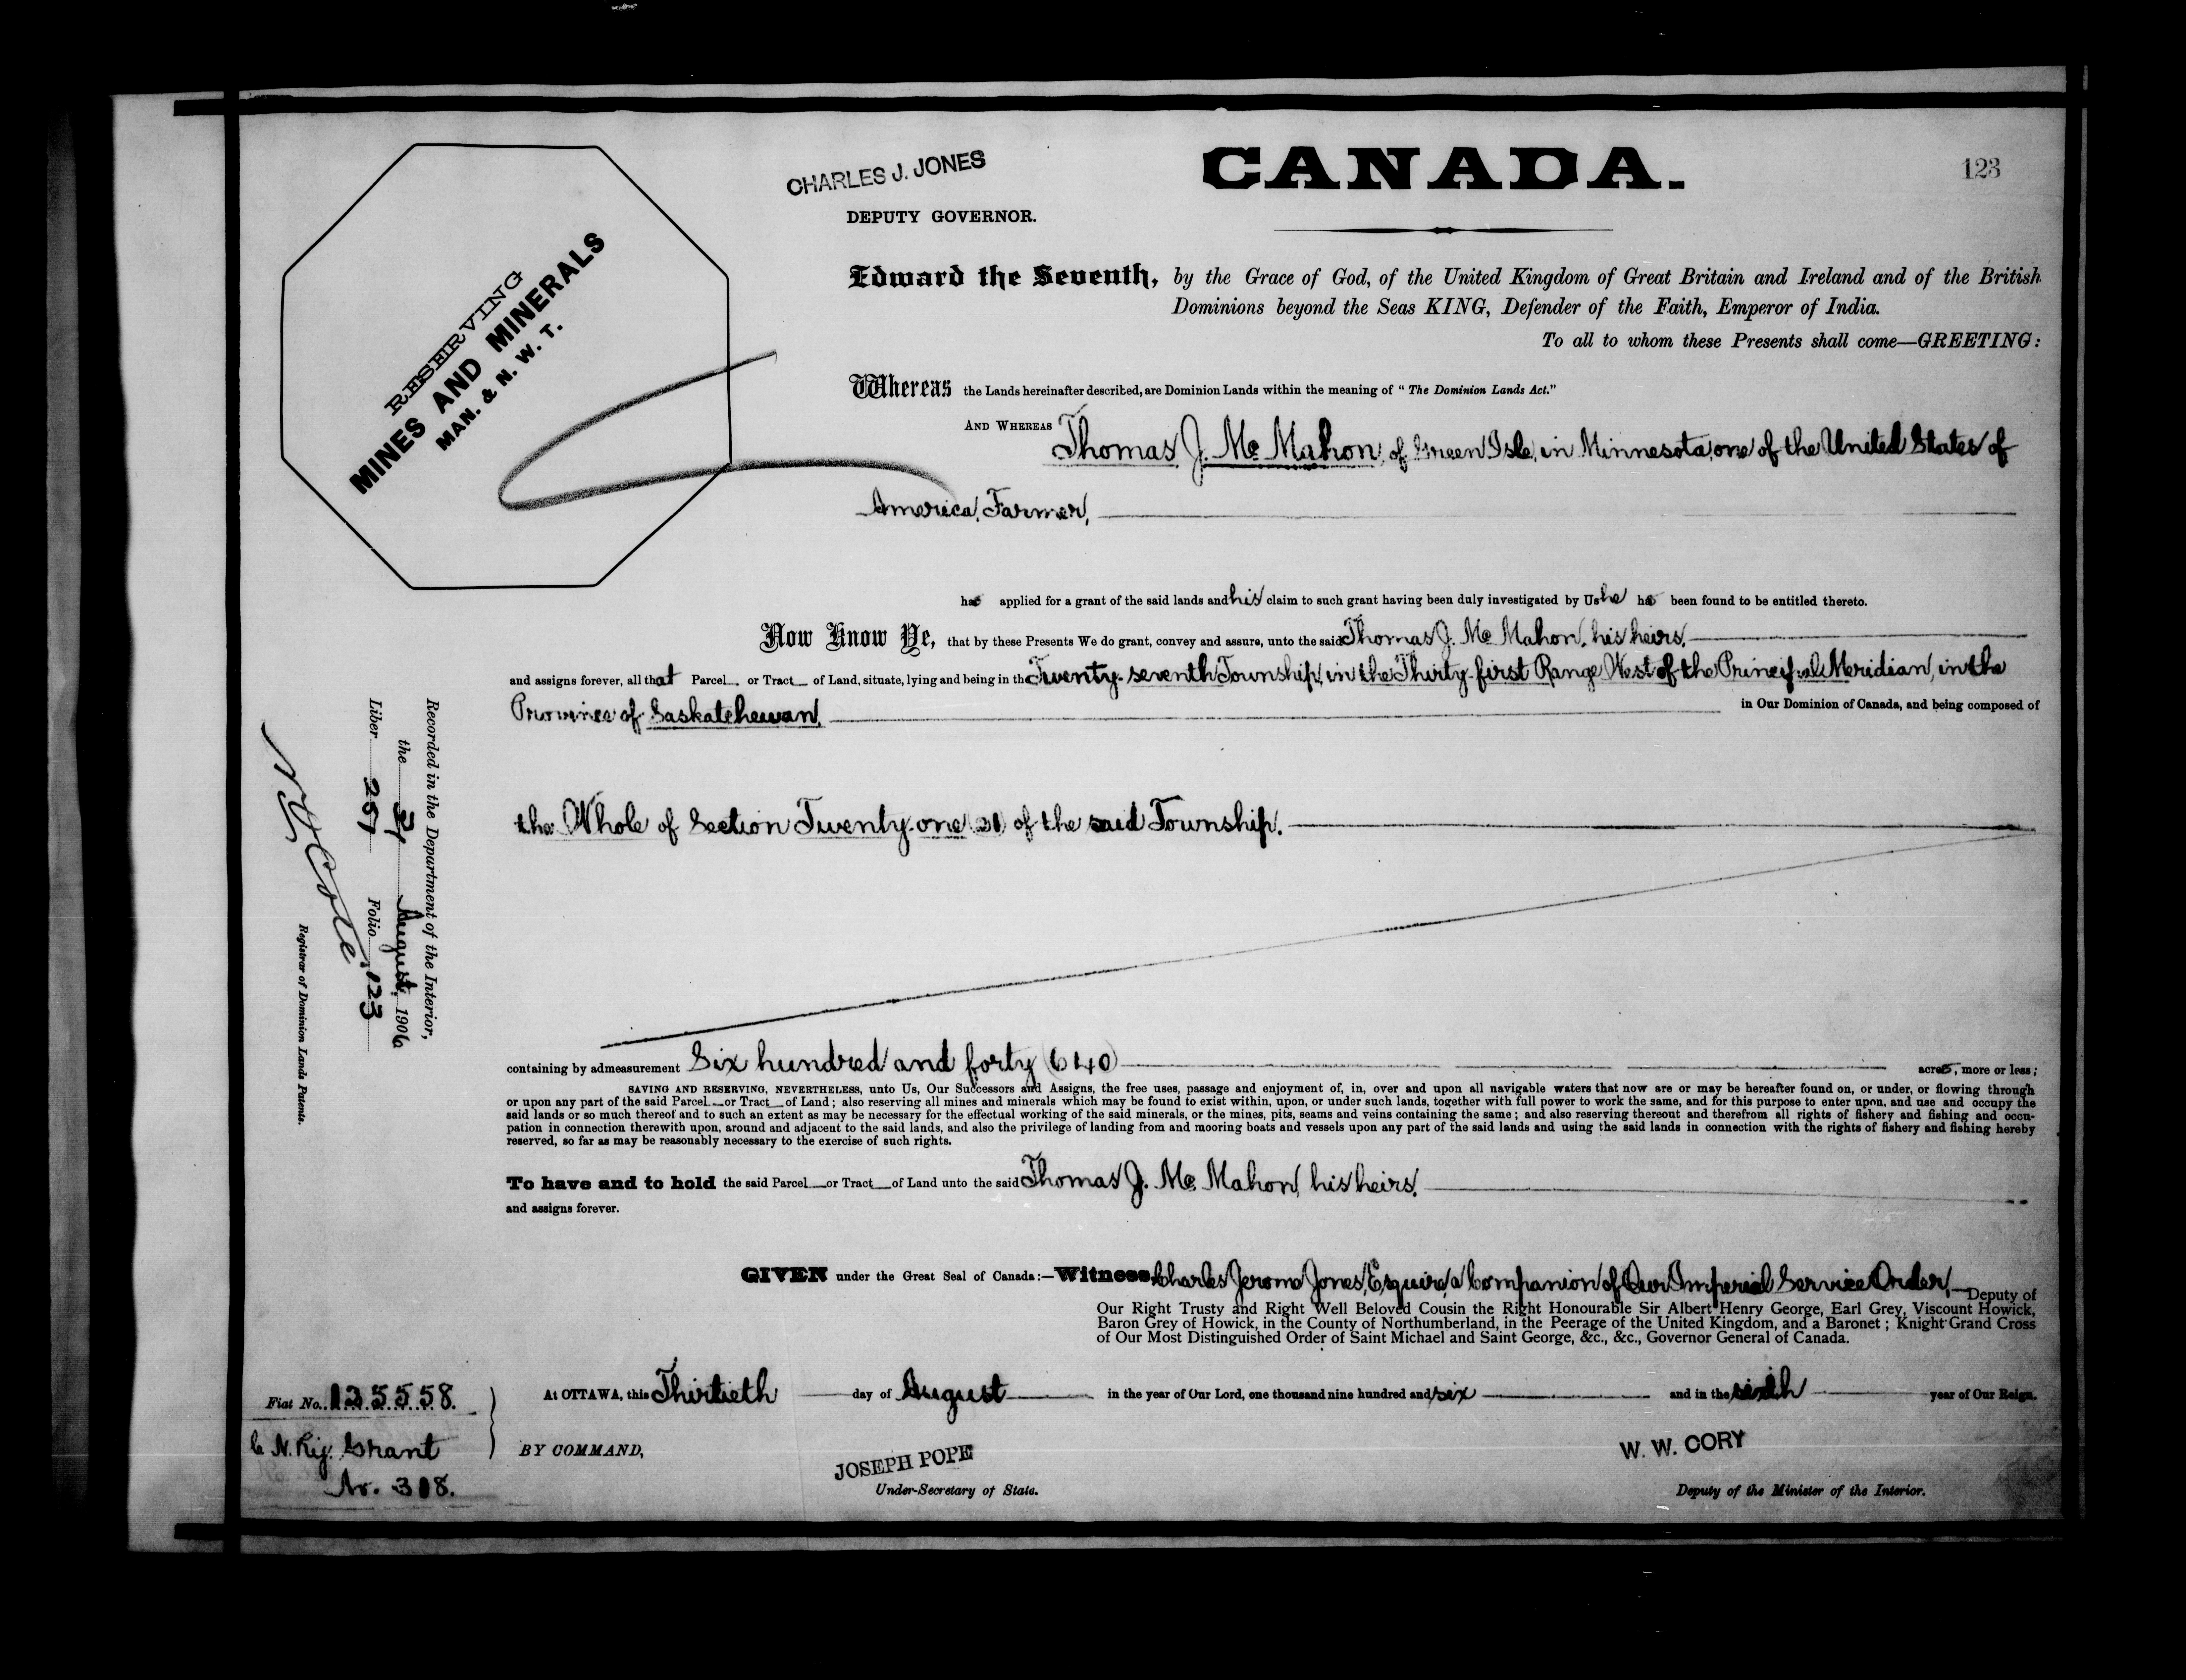 CANADA.
123
CHARLES J. JONES
DEPUTY GOVERNOR.
RESERVING
MINES AND MINERALS
MAN. & N. W. T.
Edward the Seventh, by the Grace of God, of the United Kingdom of Great Britain and Ireland and of the British
Dominions beyond the Seas KING, Defender of the Faith, Emperor of India.
To all to whom these Presents shall come—GREETING:
Whereas the Lands hereinafter described, are Dominion Lands within the meaning of "The Dominion Lands Act."
AND WHEREAS Thomas J. Mc Mahon, of Green Isle, in Minnesota, one of the United States of
America, Farmer,
has applied for a grant of the said lands and his claim to such grant having been duly investigated by Us he has been found to be entitled thereto.
Now Know Ye, that by these Presents We do grant, convey and assure, unto the said Thomas J. Mc Mahon, his heirs,
and assigns forever, all that Parcel or Tract of Land, situate, lying and being in the Twenty-seventh Township, in the Thirty-first Range West of the Principal Meridian, in the
Province of Saskatchewan, in Our Dominion of Canada, and being composed of
the Whole of Section Twenty-one (21) of the said Township.
containing by admeasurement Six hundred and forty (640) acres, more or less;
SAVING AND RESERVING, NEVERTHELESS, unto Us, Our Successors and Assigns, the free uses, passage and enjoyment of, in, over and upon all navigable waters that now are or may be hereafter found on, or under, or flowing through
or upon any part of the said Parcel or Tract of Land; also reserving all mines and minerals which may be found to exist within, upon, or under such lands, together with full power to work the same, and for this purpose to enter upon, and use and occupy the
said lands or so much thereof and to such an extent as may be necessary for the effectual working of the said minerals, or the mines, pits, seams and veins containing the same; and also reserving thereout and therefrom all rights of fishery and fishing and occu-
pation in connection therewith upon, around and adjacent to the said lands, and also the privilege of landing from and mooring boats and vessels upon any part of the said lands and using the said lands in connection with the rights of fishery and fishing hereby
reserved, so far as may be reasonably necessary to the exercise of such rights.
To have and to hold the said Parcel or Tract of Land unto the said Thomas J. Mc Mahon, his heirs,
and assigns forever.
GIVEN under the Great Seal of Canada:—Witness Charles Jerome Jones, Esquire, a Companion of Our Imperial Service Order, Deputy of
Our Right Trusty and Right Well Beloved Cousin the Right Honourable Sir Albert Henry George, Earl Grey, Viscount Howick,
Baron Grey of Howick, in the County of Northumberland, in the Peerage of the United Kingdom, and a Baronet; Knight Grand Cross
of Our Most Distinguished Order of Saint Michael and Saint George, &c., &c., Governor General of Canada.
At OTTAWA, this Thirtieth day of August in the year of Our Lord, one thousand nine hundred and six and in the sixth year of Our Reign.
BY COMMAND,
JOSEPH POPE
Under-Secretary of State.
W. W. CORY
Deputy of the Minister of the Interior.
Fiat No. 135558.
C. N. Ry. Grant
No. 308.
Recorded in the Department of the Interior,
the 31 August, 1906
Liber 257 Folio 123
N. O. Coté
Registrar of Dominion Lands Patents.